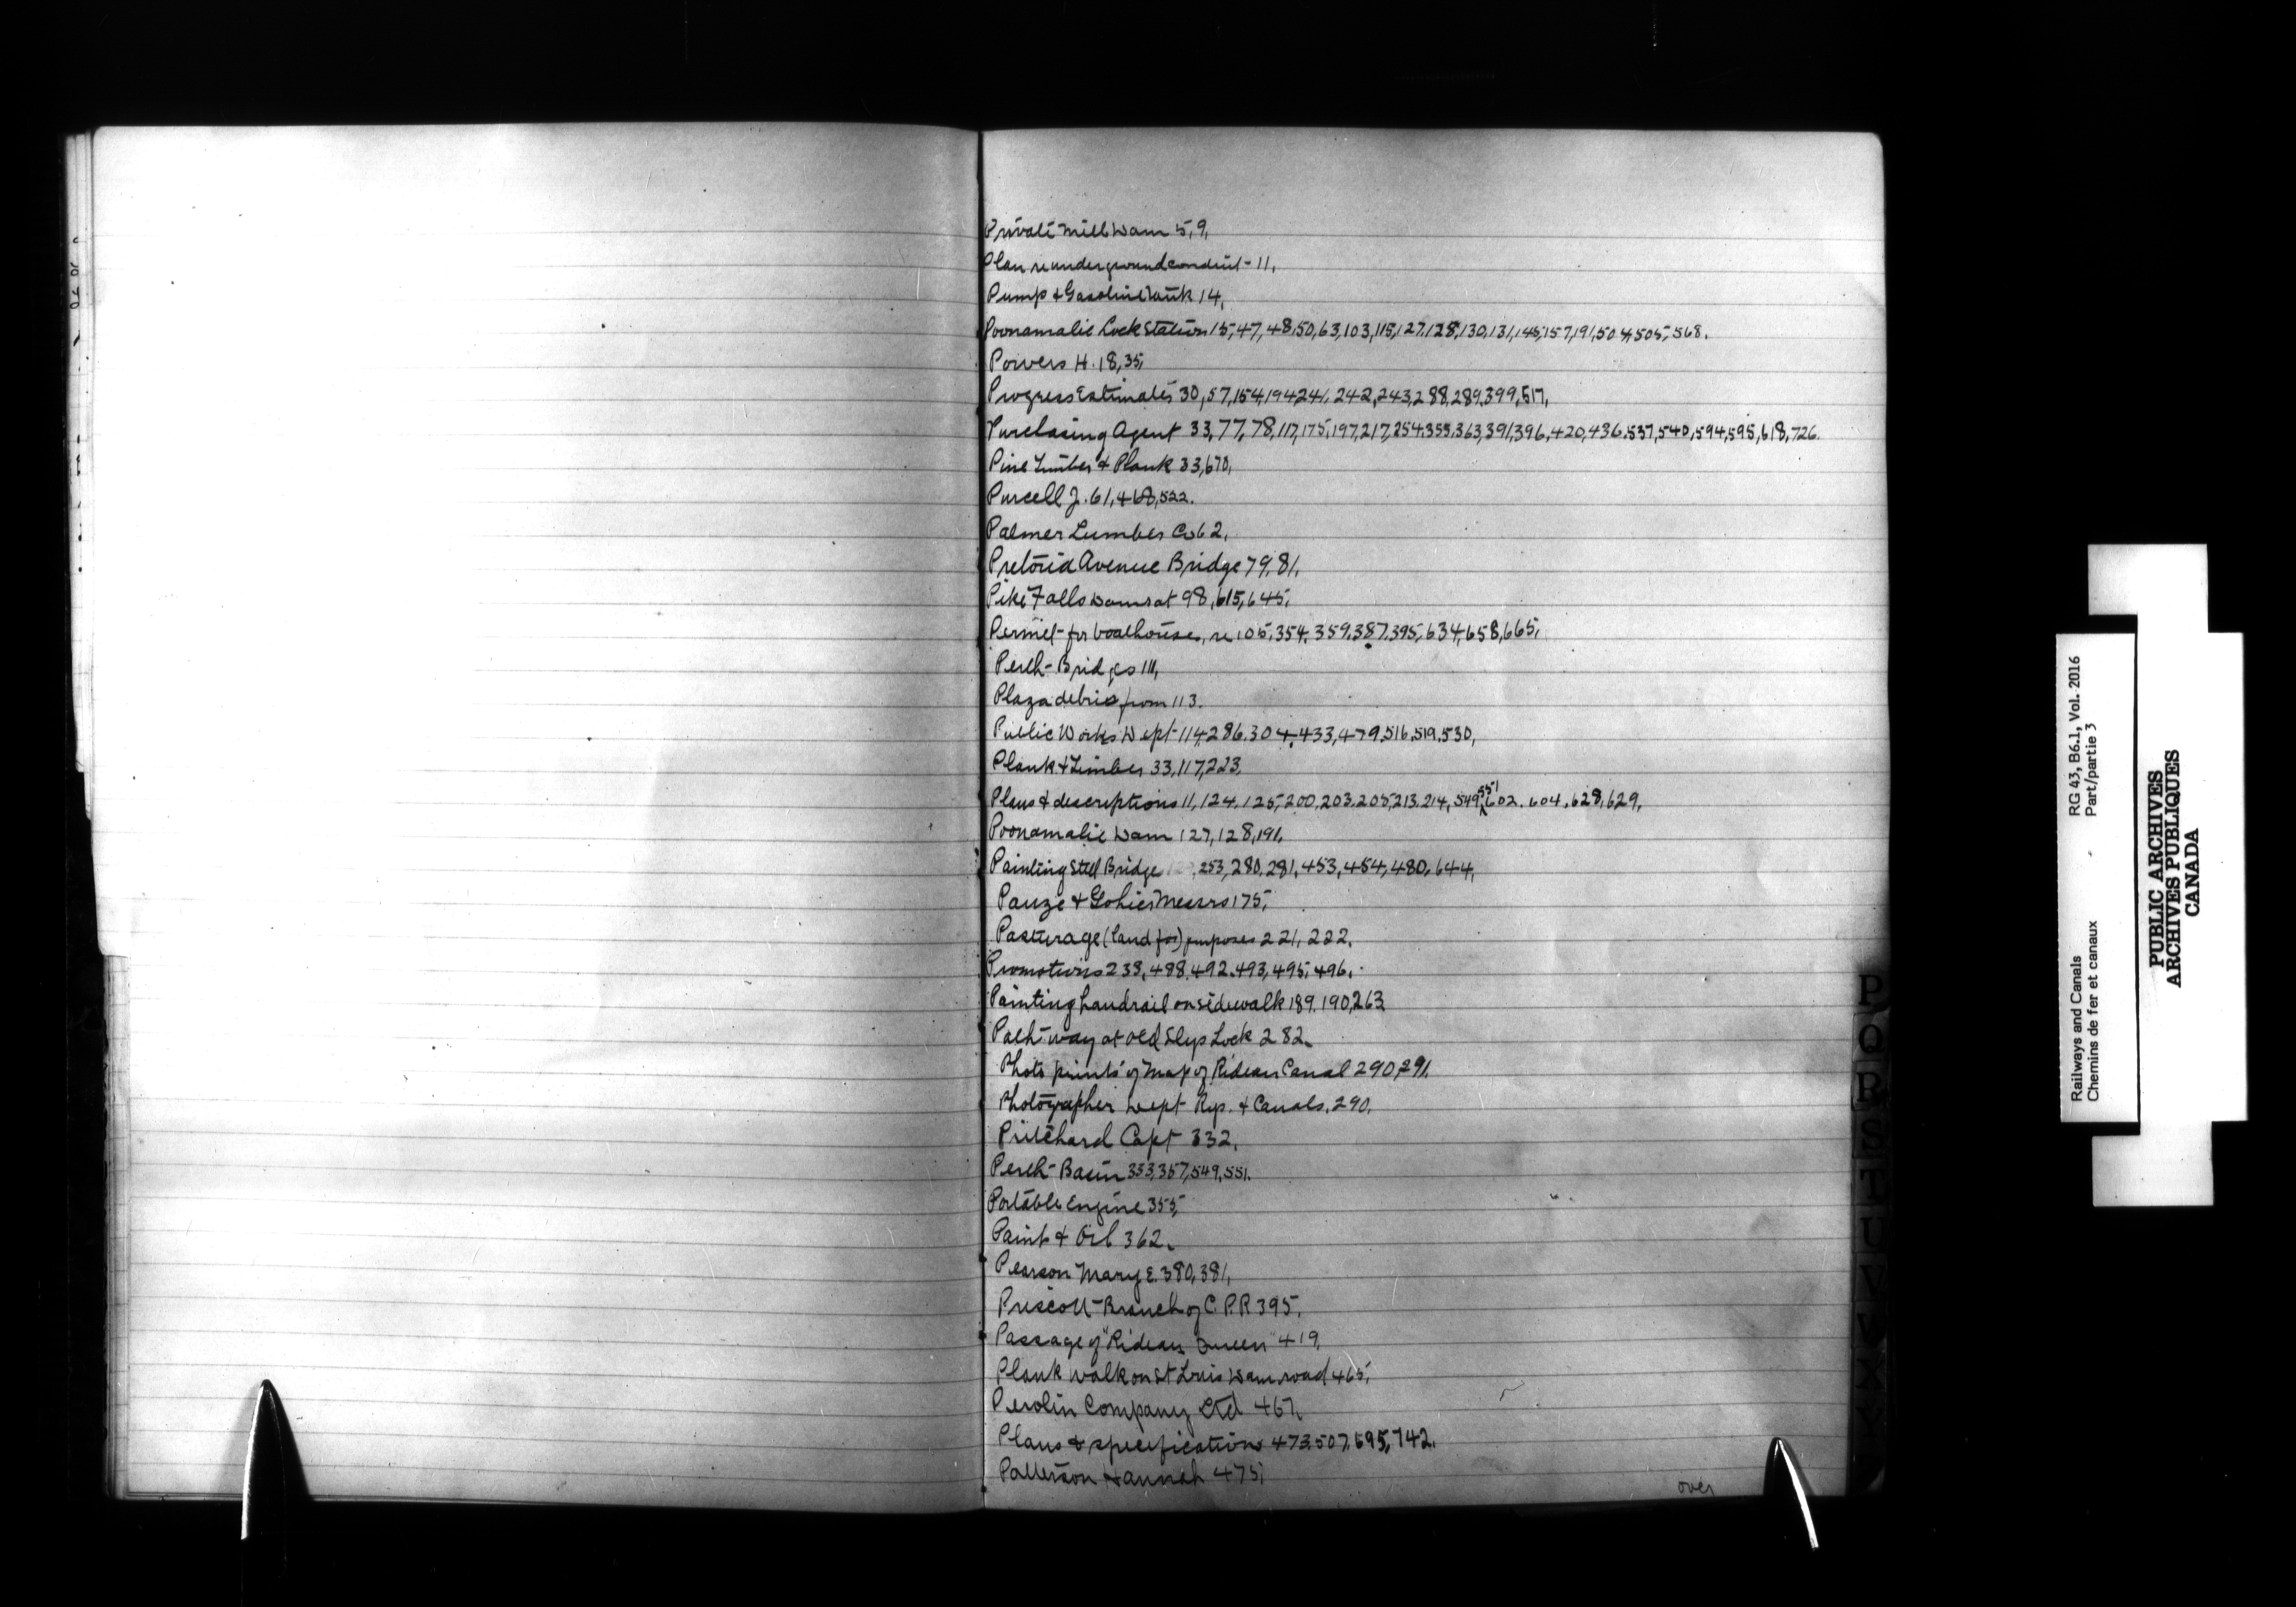 Private Mill Dam 5, 9,
Plan re underground conduit - 11,
Pump & Gasoline Tank 14,
Poonamalie Lock Station 15, 47, 48, 50, 63, 103, 115, 127, 128, 130, 131, 145, 157, 191, 504, 505, 568.
Powers H. 18, 35,
Progress Estimates 30, 57, 154, 194, 241, 242, 243, 288, 289, 399, 517,
Purchasing Agent 33, 77, 78, 117, 175, 197, 217, 254, 355, 363, 391, 396, 420, 436, 537, 540, 594, 595, 618, 726.
Pine Timber & Plank 33, 670,
Purcell J. 61, 468, 522.
Palmer Lumber Co 62,
Pretoria Avenue Bridge 79, 81,
Pike Falls Dams at 98, 615, 645,
Permit for boathouses, re 105, 354, 359, 387, 395, 634, 658, 665,
Perth Bridges 111,
Plaza debris from 113.
Public Works Dept 114, 286, 304, 433, 479, 516, 519, 530,
Plank & Timber 33, 117, 223,
Plans & descriptions 11, 124, 125, 200, 203, 205, 213, 214, 549, 551, 602, 604, 628, 629,
Poonamalie Dam 127, 128, 191,
Painting Steel Bridge , 253, 280, 281, 453, 454, 480, 644,
Pauze & Gohier Messrs 175,
Pasturage (land for) purposes 221, 222,
Promotions 238, 488, 492, 493, 495, 496,
Painting handrail on sidewalk 189, 190, 263
Path-way at Old Slys Lock 282,
Photo prints of Map of Rideau Canal 290, 291,
Photographer Dept Rys. & Canals, 290,
Pritchard Capt 332,
Perth Basin 333, 357, 549, 551.
Portable Engine 355,
Paint & Oil 362,
Pearson Mary E. 380, 381,
Prescott Branch of C.P.R 395,
Passage of "Rideau Queen" 419,
Plank walk on St Louis Dam road 465,
Perolin Company Ltd 467,
Plans & specification 473, 507, 695, 742.
Patterson Hannah 475,
over
P
Q
R
S
T
U
V
W
X
Y
Railways and Canals RG 43, B6.1, Vol. 2016
Chemins de fer et canaux Part/partie 3
PUBLIC ARCHIVES
ARCHIVES PUBLIQUES
CANADA